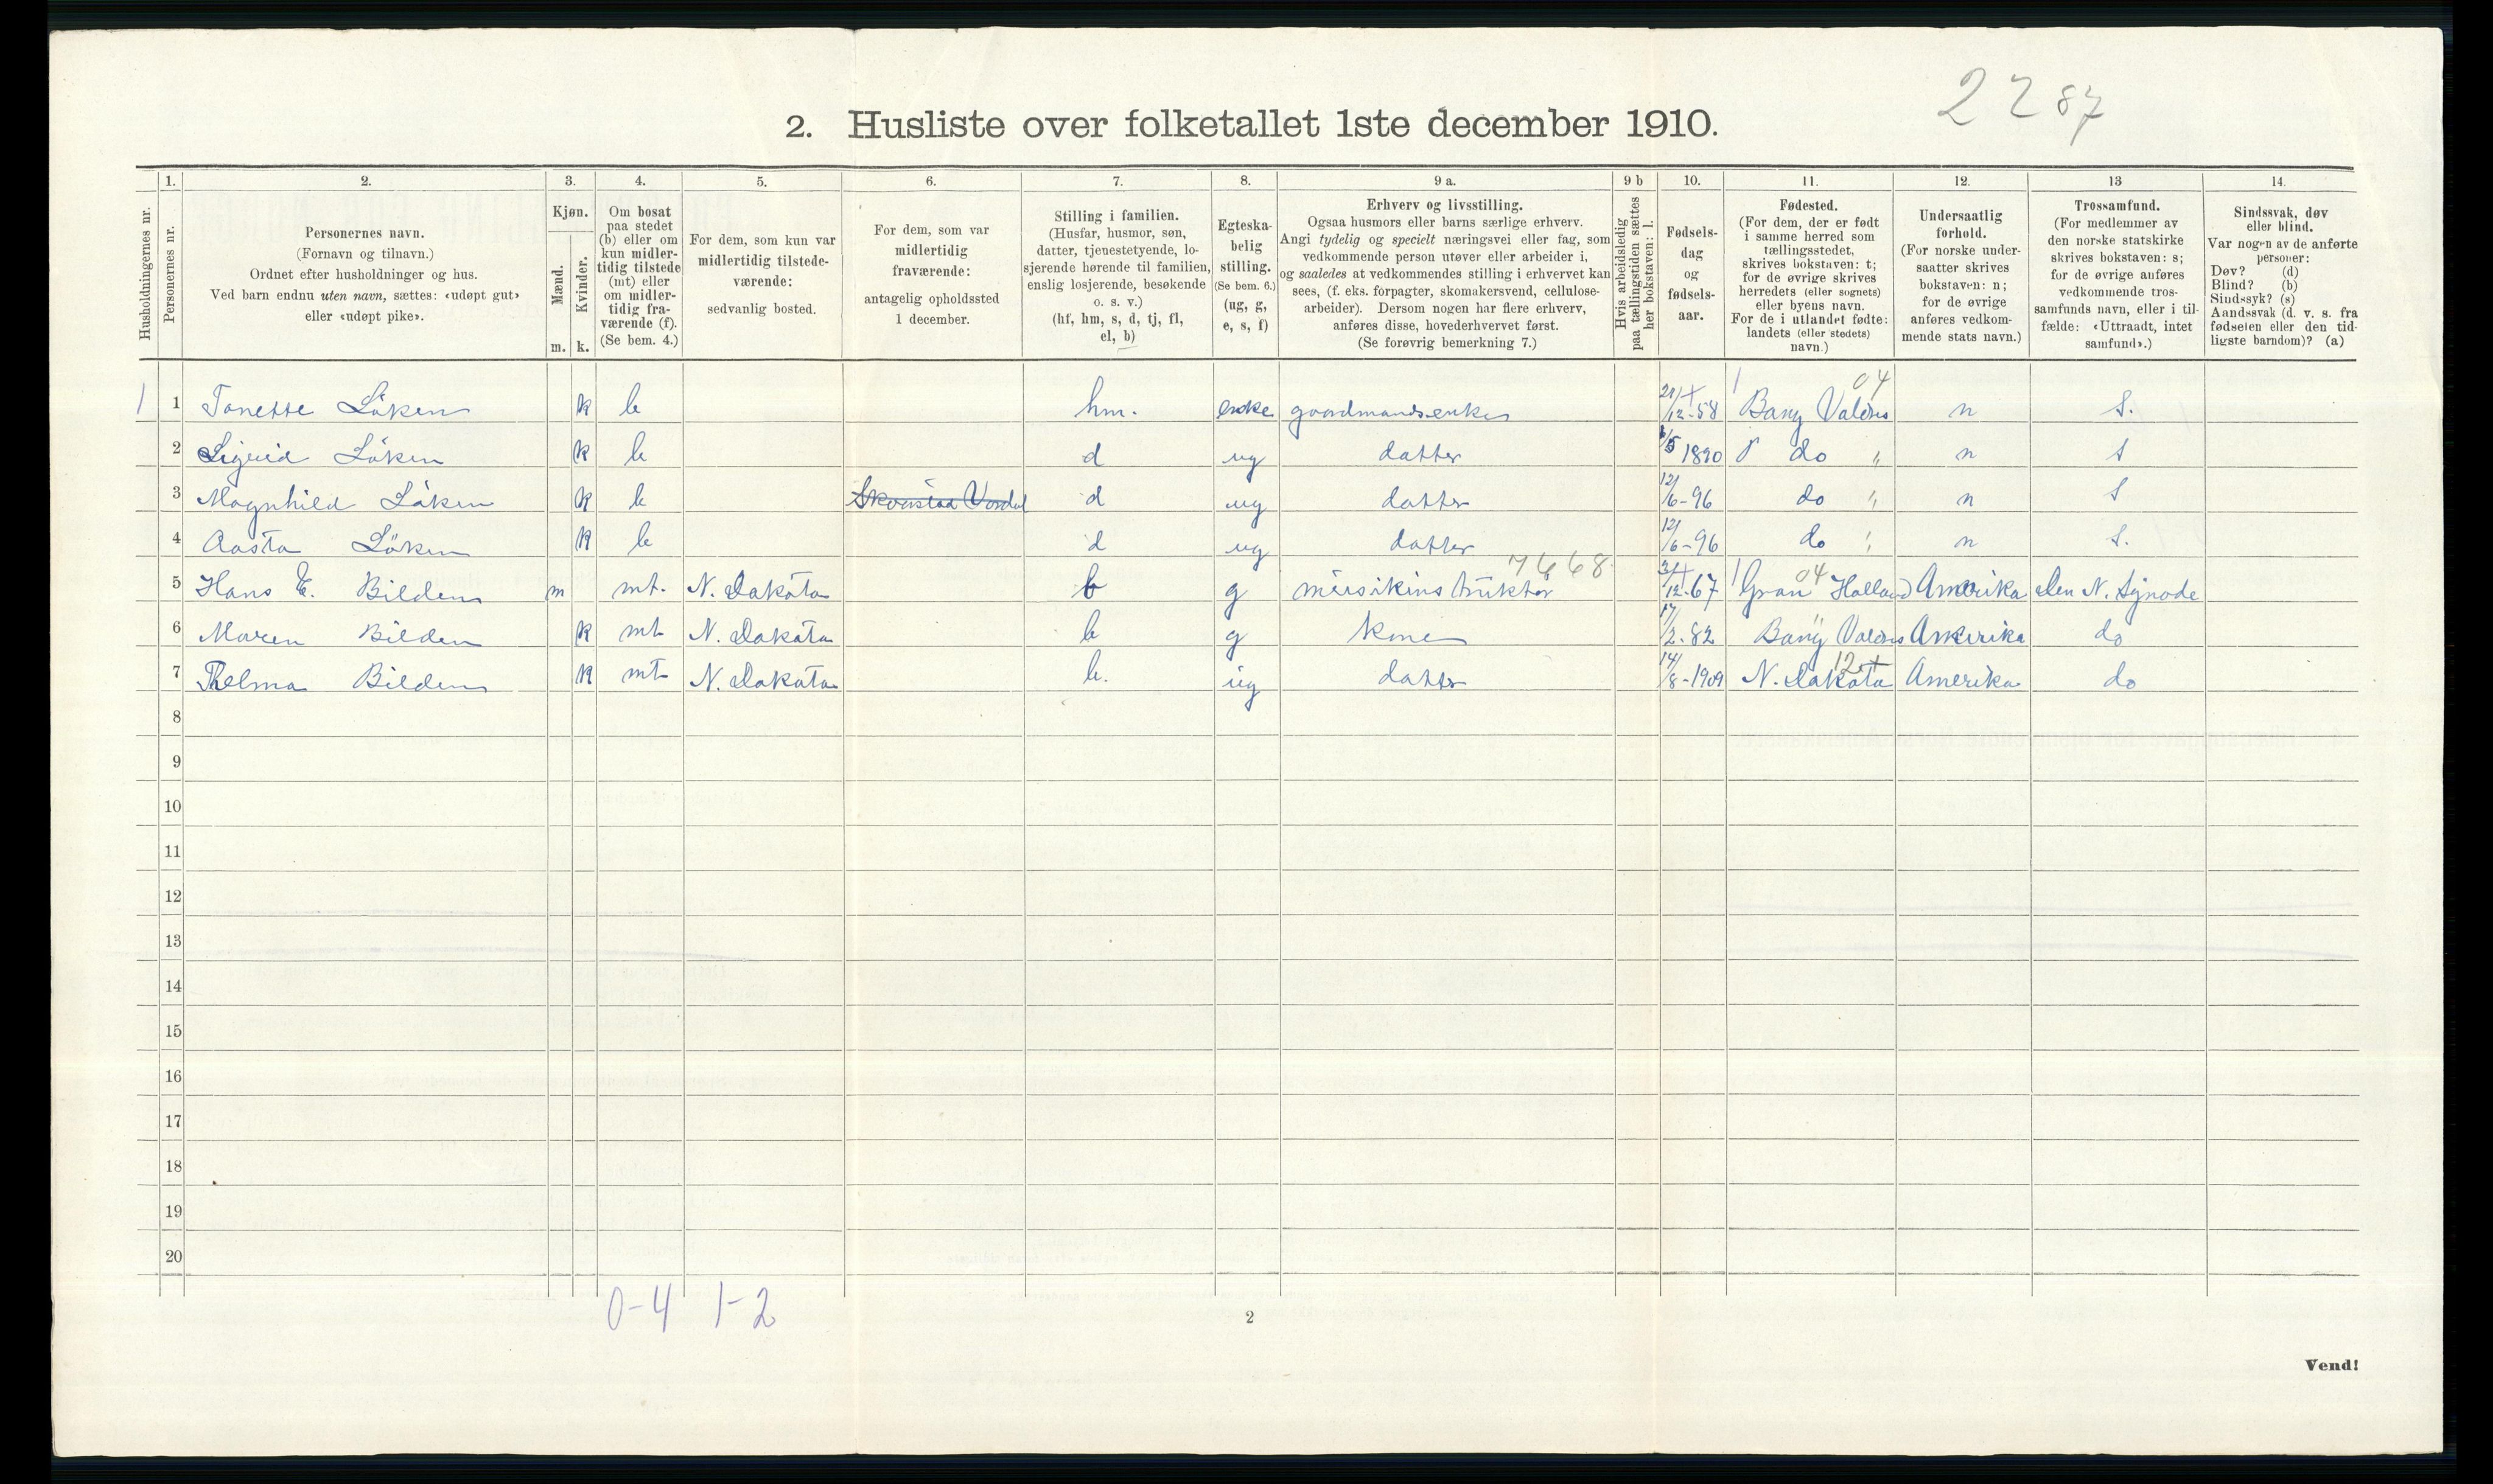 2 2 87
2. Husliste over folketallet 1ste december 1910.
1. 2. 3. 4. 5. 6. 7. 8. 9 a. 9 b 10. 11. 12. 13 14.
Husholdningernes nr.
Personernes nr.
Personernes navn.
(Fornavn og tilnavn.)
Ordnet efter husholdninger og hus.
Ved barn endnu uten navn, sættes: «udøpt gut»
eller «udøpt pike».
Kjøn.
Mænd.
Kvinder.
m. k.
Om bosat
paa stedet
(b) eller om
kun midler-
tidig tilstede
(mt) eller
om midler-
tidig fra-
værende (f).
(Se bem. 4.)
For dem, som kun var
midlertidig tilstede-
værende:
sedvanlig bosted.
For dem, som var
midlertidig
fraværende:
antagelig opholdssted
1 december.
Stilling i familien.
(Husfar, husmor, søn,
datter, tjenestetyende, lo-
sjerende hørende til familien,
enslig losjerende, besøkende
o. s. v.)
(hf, hm, s, d, tj, fl,
el, b)
Egteska-
belig
stilling.
(Se bem. 6.)
(ug, g,
e, s, f)
Erhverv og livsstilling.
Ogsaa husmors eller barns særlige erhverv.
Angi tydelig og specielt næringsvei eller fag, som
vedkommende person utøver eller arbeider i,
og saaledes at vedkommendes stilling i erhvervet kan
sees, (f. eks. forpagter, skomakersvend, cellulose-
arbeider). Dersom nogen har flere erhverv,
anføres disse, hovederhvervet først.
(Se forøvrig bemerkning 7.)
Hvis arbeidsledig
paa tællingstiden sættes
her bokstaven: l.
Fødsels-
dag
og
fødsels-
aar.
Fødested.
(For dem, der er født
i samme herred som
tællingsstedet,
skrives bokstaven: t;
for de øvrige skrives
herredets (eller sognets)
eller byens navn.
For de i utlandet fødte:
landets (eller stedets)
navn.)
Undersaatlig
forhold.
(For norske under-
saatter skrives
bokstaven: n;
for de øvrige
anføres vedkom-
mende stats navn.)
Trossamfund.
(For medlemmer av
den norske statskirke
skrives bokstaven: s;
for de øvrige anføres
vedkommende tros-
samfunds navn, eller i til-
fælde: «Uttraadt, intet
samfund».)
Sindssvak, døv
eller blind.
Var nogen av de anførte
personer:
Døv? (d)
Blind? (b)
Sindssyk? (s)
Aandssvak (d. v. s. fra
fødselen eller den tid-
ligste barndom)? (a)
1 1 Tonette Löken k b hm. enke gaardmandsenke 21/12-58 Bang Valdres 04 n S.
2 Sigrid Löken k b d ug datter 6/5 1890 do " n S
3 Magnhild Löken k b d ug datter 12/6-96 do " n S
4 Aasta Löken k b d ug datter 12/6-96 do " n S.
5 Hans E. Bilden m mt. N. Dakota b g 7668 31/12-67 Gran 04 Amerika Den N. Synode
6 Maren Bilden k mt N. Dakota b g Kone 17/2-82 Bang Valdres Amerika do
7 Thelma Bilden k mt N. Dakota b. ug datter 14/8-1909 N. Dakota 12 Amerika do
8
9
10
11
12
13
14
15
16
17
18
19
20
0-4 1-2
2
Vend!